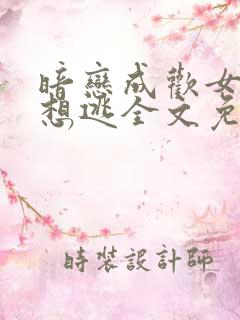 暗戀成歡女
想逃全文免
時裝設計師